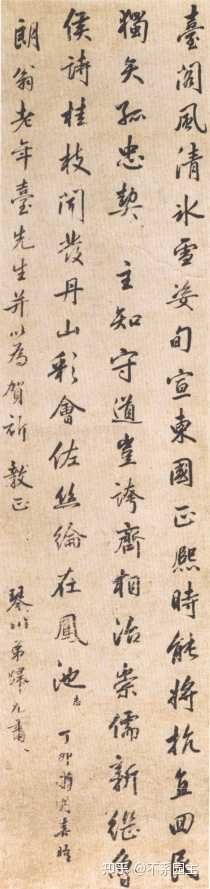 臺閣風清冰雪姿旬宣東國正熙時能將抗直回民
獨矢孤忠契 主知守道豈誇齊相治崇儒新繼魯
侯詩桂枝聞發丹山彩會佐絲綸在鳳池 志
丁卯
朗翁老年臺先生并以為賀祈 教正
琴川弟歸允肅
知乎 @不系园主